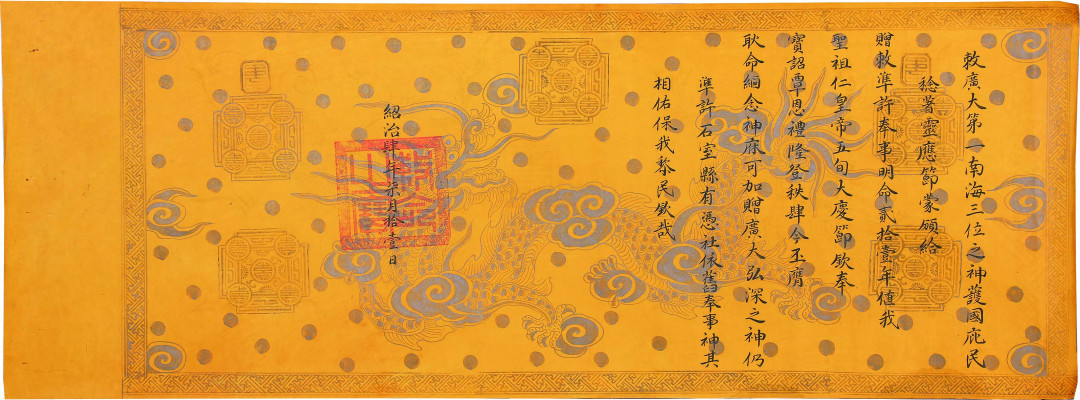 敕廣大第一南海三位之神護國庇民
稔著靈應節蒙頒給
贈敕準許奉事明命貳拾壹年值我
聖祖仁皇帝五旬大慶節欽奉
寶詔覃恩禮隆登秩肆今丕膺
耿命緬念神庥可加贈廣大弘深之神仍
準許石室縣有憑社依舊奉事神其
相佑保我黎民欽哉
紹治肆年柒月拾壹日